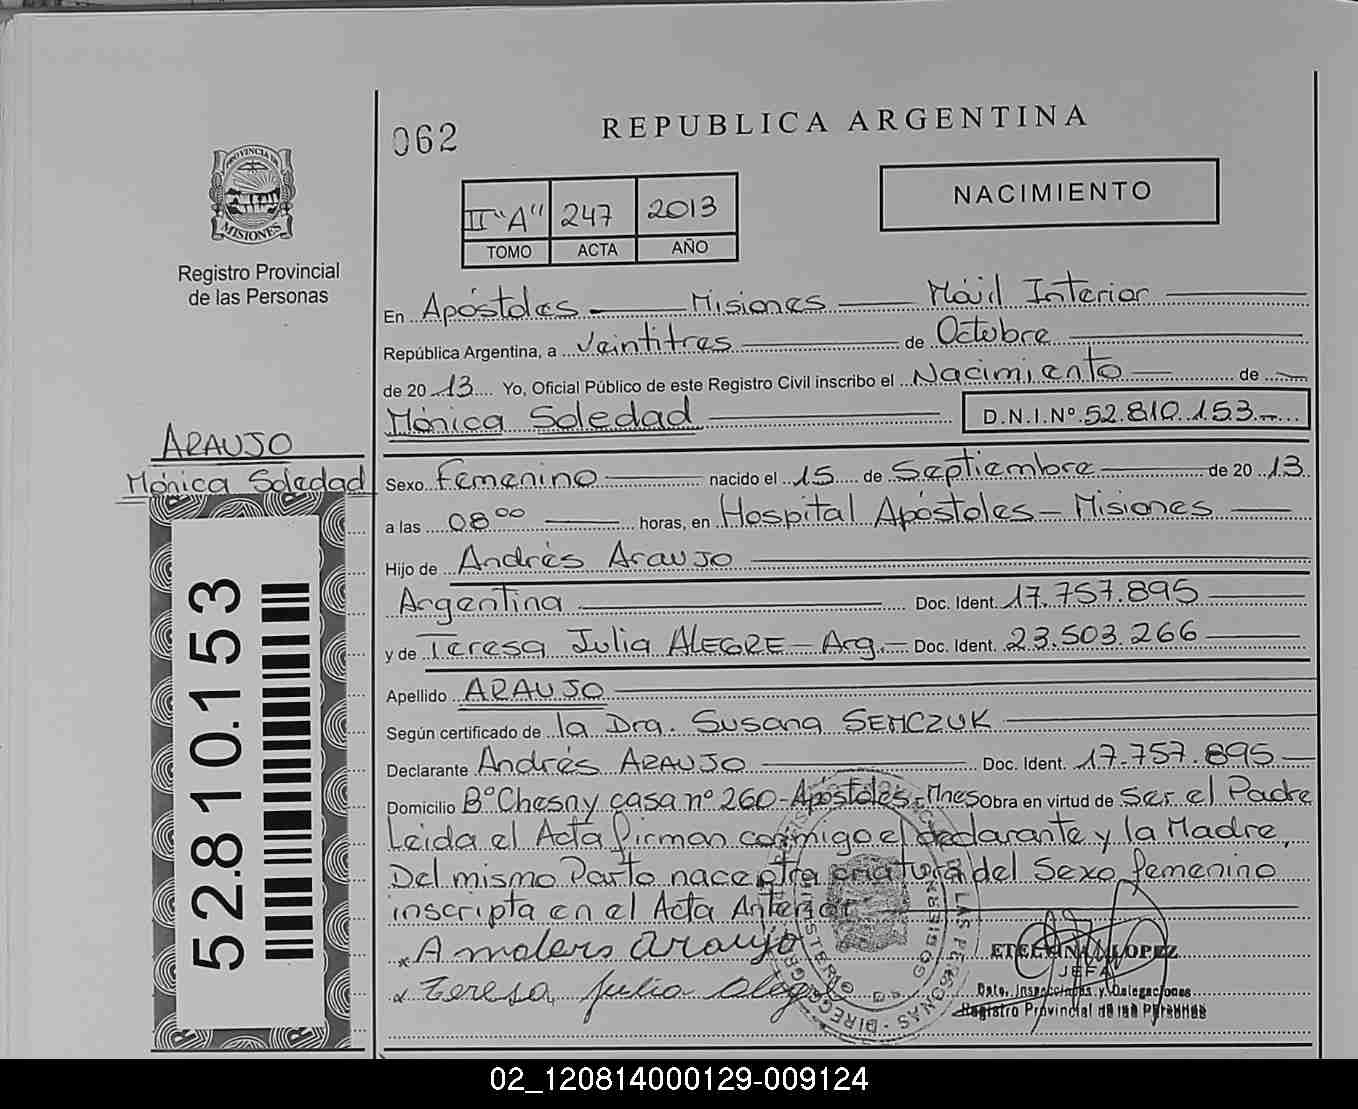 062
REPUBLICA ARGENTINA
NACIMIENTO
II "A" 247 2013
TOMO ACTA AÑO
PROVINCIA DE
MISIONES
Registro Provincial
de las Personas
En Apóstoles Misiones Móvil Interior
República Argentina, a Veintitres de Octubre
de 20 13 Yo, Oficial Público de este Registro Civil inscribo el Nacimiento de
Mónica Soledad D.N.I.Nº 52.810.153
ARAUJO
Mónica Soledad
Sexo Femenino nacido el 15 de Septiembre de 20 13
a las 08 00 horas, en Hospital Apóstoles - Misiones
Hijo de Andrés Araujo
Argentina Doc. Ident. 17.757.895
y de Teresa Julia ALEGRE - Arg. Doc. Ident. 23.503.266
Apellido ARAUJO
Según certificado de la Dra. Susana SEMCZUK
Declarante Andrés ARAUJO Doc. Ident. 17.757.895
Domicilio Bº Chesny casa nº 260 - Apóstoles - Mnes Obra en virtud de Ser el Padre
Leida el Acta firman conmigo el declarante y la Madre,
Del mismo Parto nace otra criatura del Sexo femenino
inscripta en el Acta Anterior
Araujo
Teresa Julia
LOPEZ
JEFA
Dpto. Inspecciones y Delegaciones
Registro Provincial de las Personas
52.810.153
02_120814000129-009124